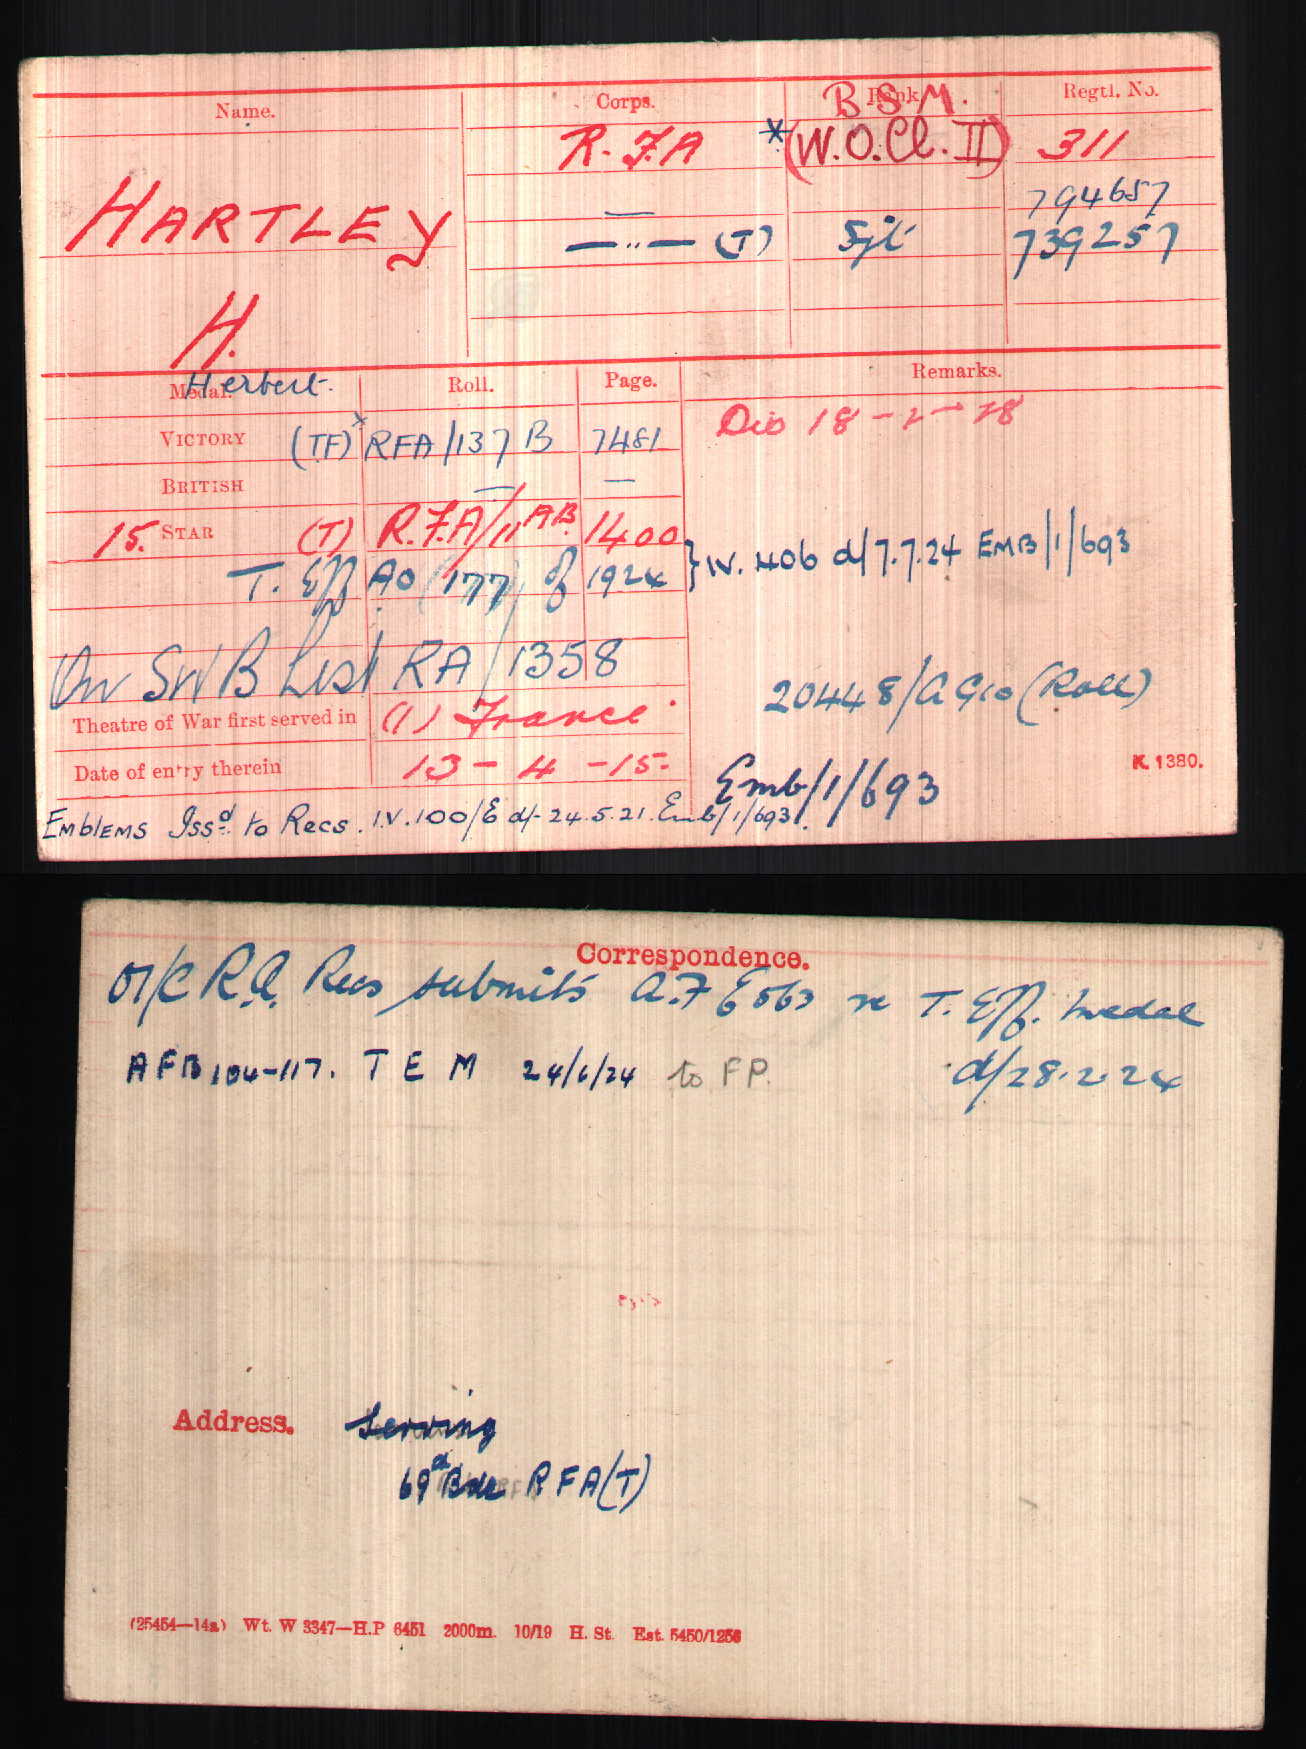 Name. Corps. Rank. Regtl. No.
B.S.M.
HARTLEY R.F.A *(W.O.Cl.II) 311
794657
—"— (T) Sjt 739257
H.
Herbert.
Medal. Roll. Page. Remarks.
VICTORY (TF)x RFA/137 B 7481
BRITISH — —
15. STAR (T) R.F.A/11 AB. 1400
T. Eff AO (177) of 1924 } IV. 406 d/7.7.24 EMB/1/693
On SWB List RA/1358
20448/AG10 (Roll)
Theatre of War first served in (1) France.
Date of entry therein 13 - 4 - 15.
K. 1380.
Emb/1/693
Emblems Issd to Recs. I.V.100/E d/- 24.5.21. Emb/1/693.
Correspondence.
O I/C R.A. Recs submits A.F E563 re T. Eff. medal
d/28.2.24
AFB 104-117. T E M 24/6/24 to F P.
Address. Serving
69 Bde R F A (T)
(25454—14a) Wt. W 3347—H.P 6451 2000m. 10/19 H. St. Est. 5450/1256